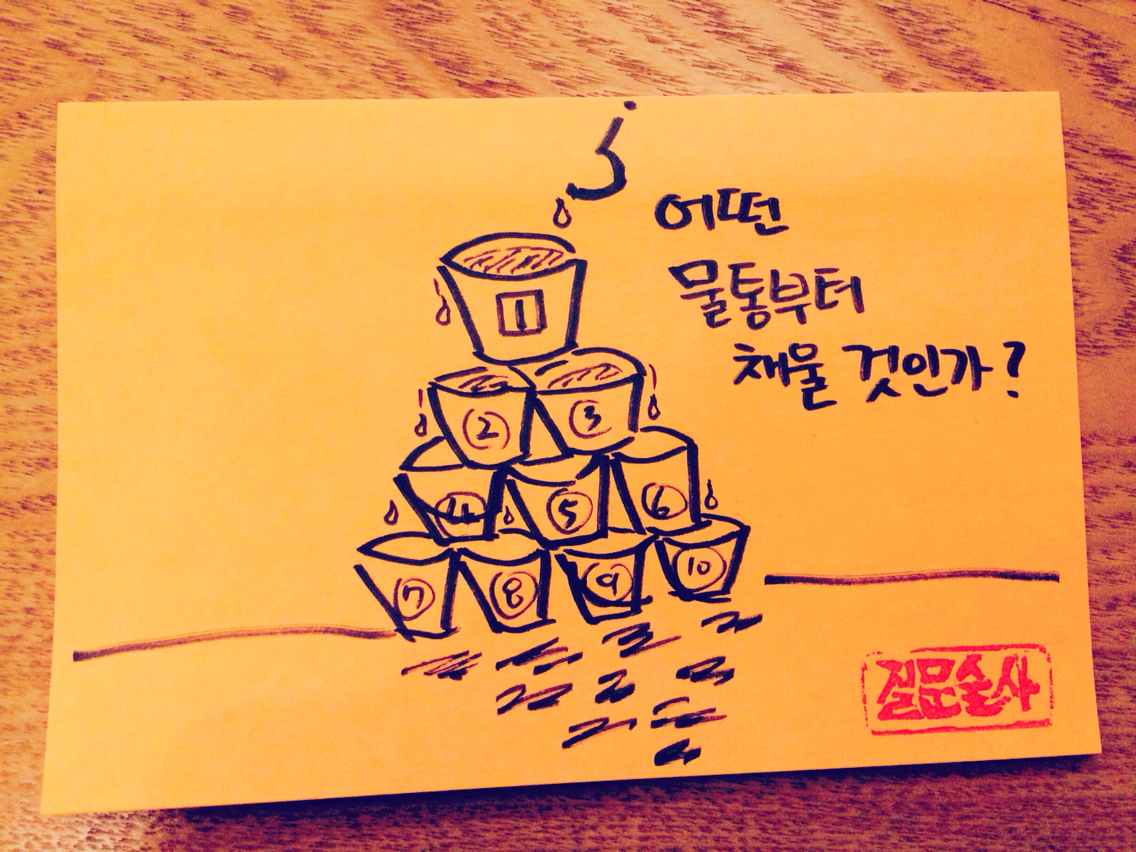 어떤
물통부터
채울 것인가?
1
2 3
4 5 6
7 8 9 10
질문술사